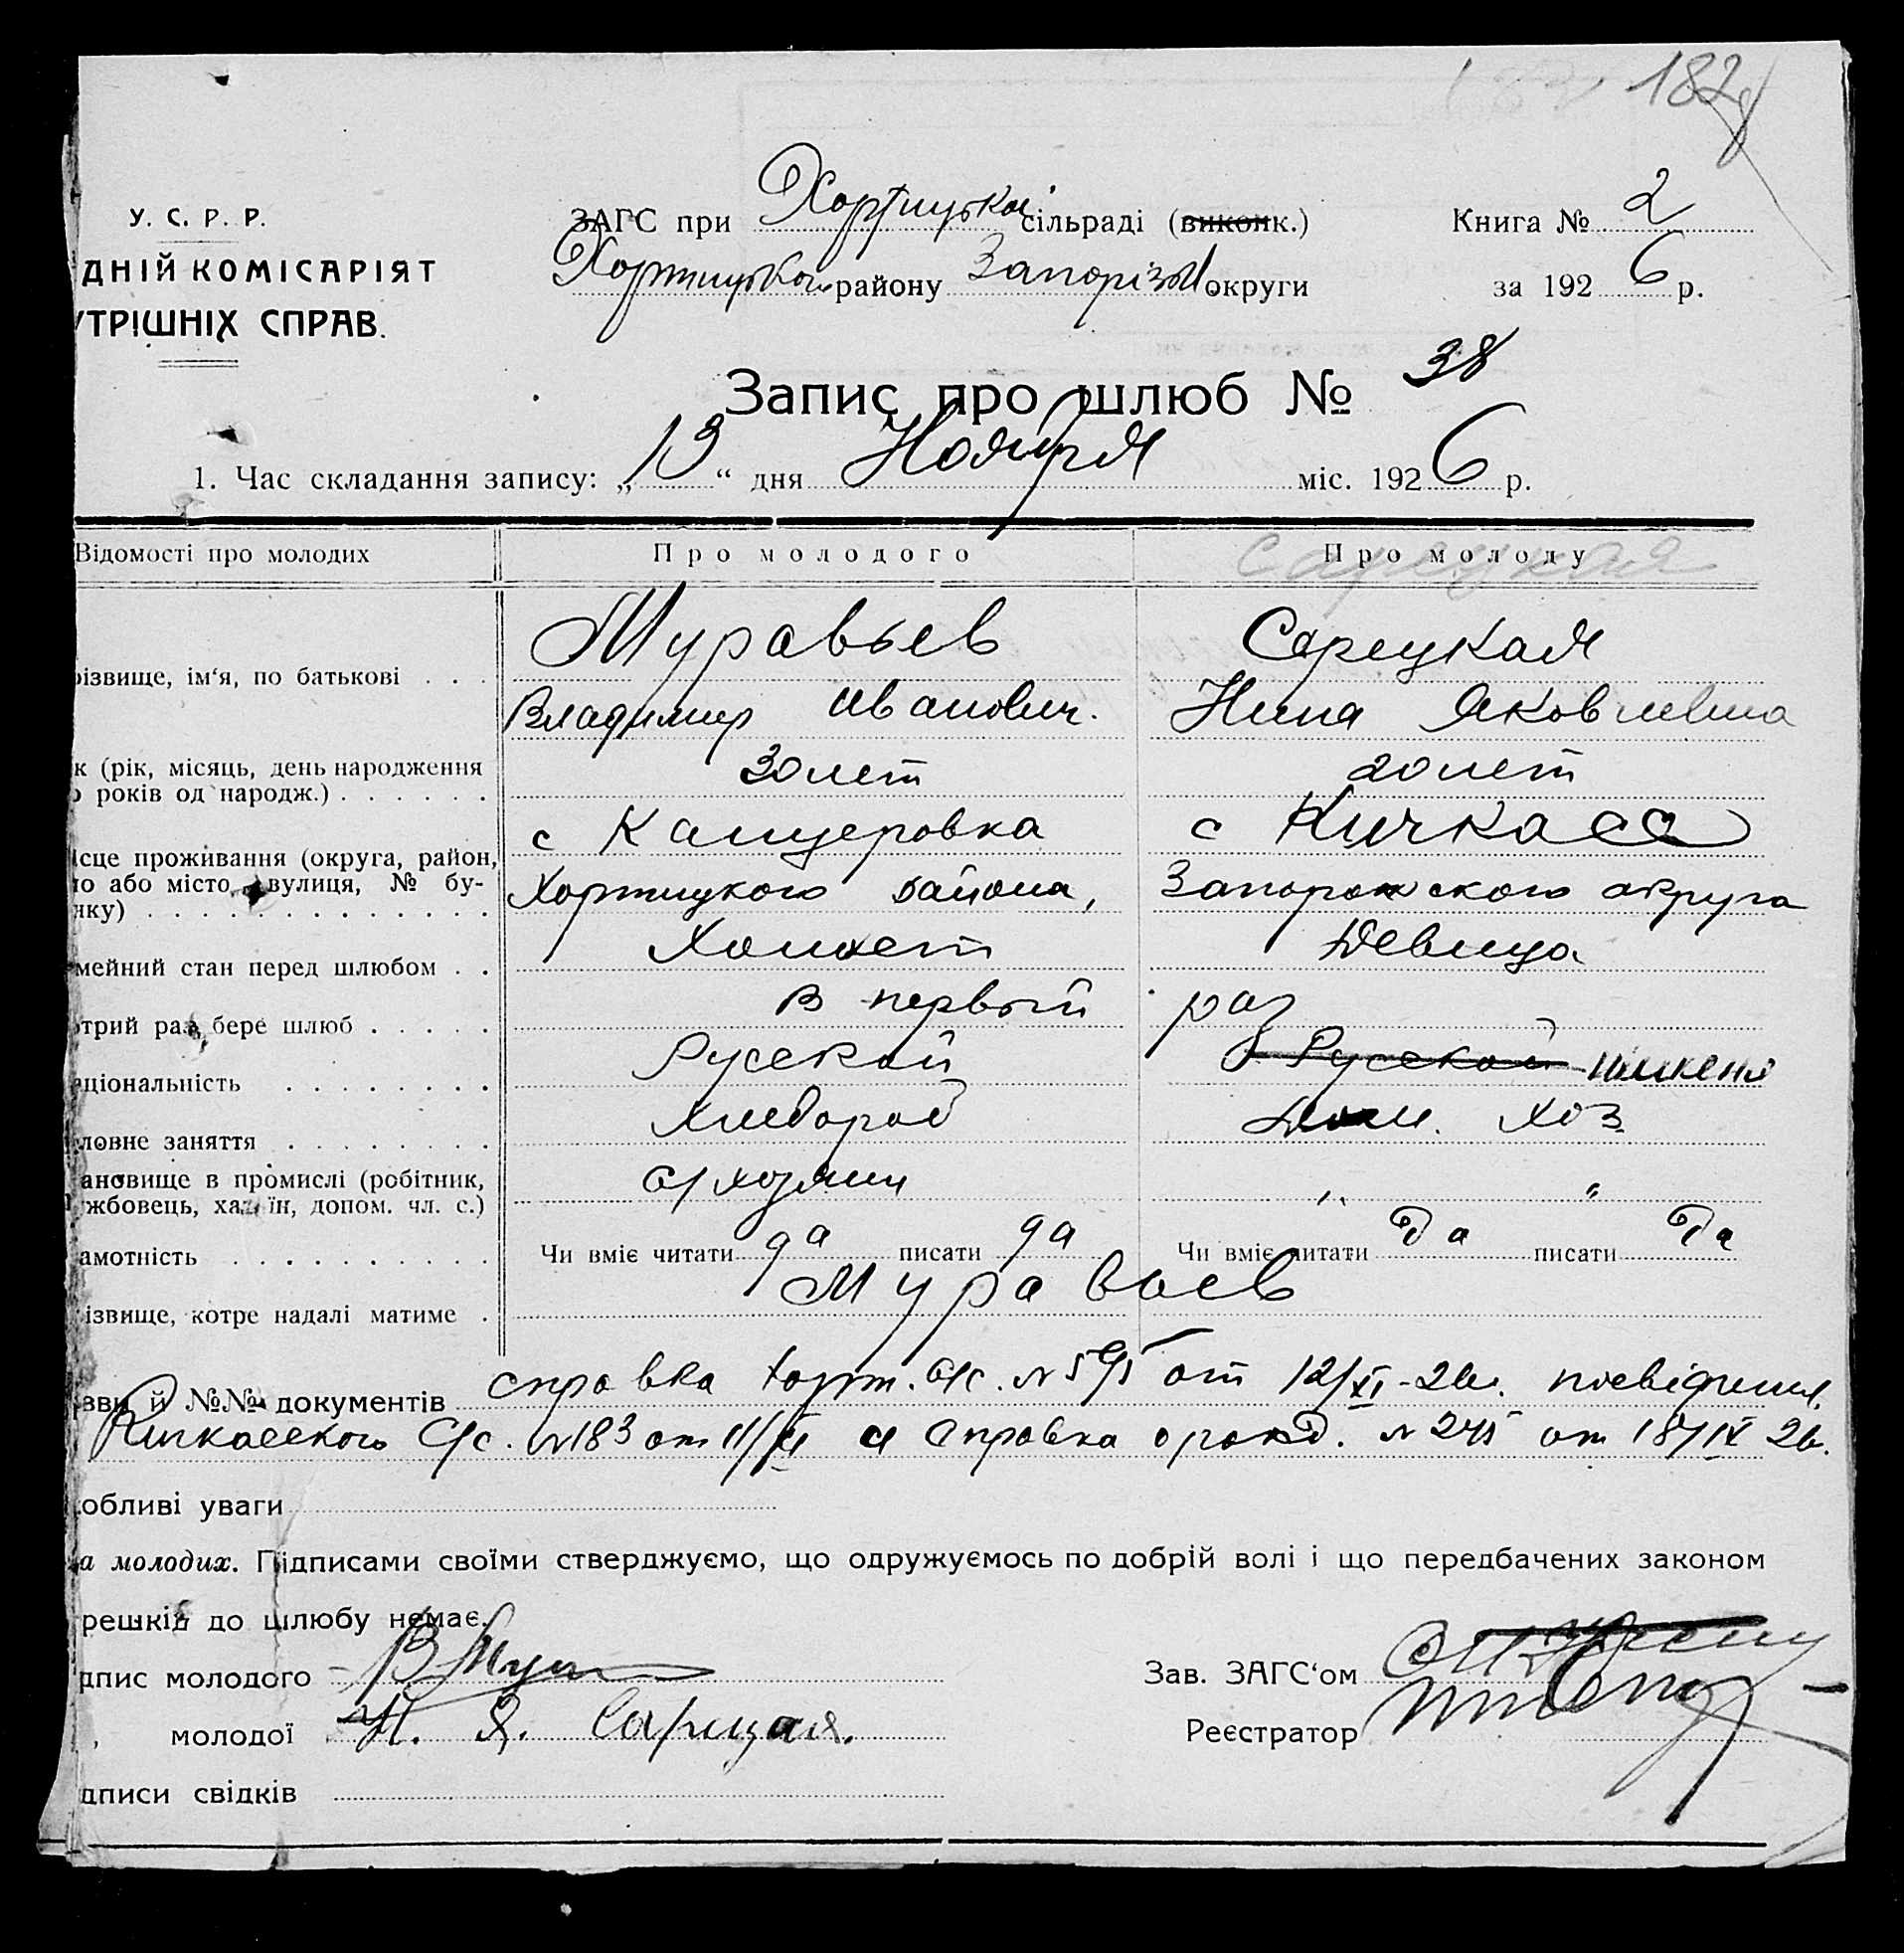 182
У. С. Р. Р.
ДНІЙ КОМІСАРІЯТ
ТРІШНІХ СПРАВ.
ЗАГС при Хортицької сільраді (виконк.)
Книга № 2
Хортицького району Запорізької округи
за 1926 р.
Запис про шлюб № 38
1. Час складання запису: „13“ дня Ноября міс. 1926 р.
Відомості про молодих
Про молодого
Про молоду
Сарецкая
Муравьев
Сарецкая
різвище, ім‘я, по батькові . . .
Владимир Иванович.
Нина Яковлевна
к (рік, місяць, день народження
о років од народж.) . . . . . .
30 лет
20 лет
с Канцеровка
с Кичкасс
ісце проживання (округа, район,
ло або місто, вулиця, № бу-
нку) . . . . . . . . . . . . .
Хортицкого района,
Запорожского округа
мейний стан перед шлюбом . .
Холост
Девица
отрий раз бере шлюб . . . . .
В первый
раз
аціональність . . . . . . . .
Русский
Русской німкеня
ловне заняття . . . . . . . .
Хлебороб
Дом. хоз
ановище в промислі (робітник,
жбовець, хазяїн, допом. чл. с.)
с/хозяин
„ “
амотність . . . . . . . . . .
Чи вміє читати да писати да
Чи вміє читати да писати да
ізвище, котре надалі матиме .
Муравьев
зви й №№ документів справка Хорт. с/с. № 595 от 12/XI-26г. посвідчення
Кичкасского с/с. № 183 от 11/XI и справка о рожд. № 245 от 18/IX 26г.
обливі уваги
а молодих. Підписами своїми стверджуємо, що одружуємось по добрій волі і що передбачених законом
решкід до шлюбу немає.
дпис молодого
Зав. ЗАГС‘ом
„ молодої Н. Я. Сарецкая.
Реєстратор
дписи свідків